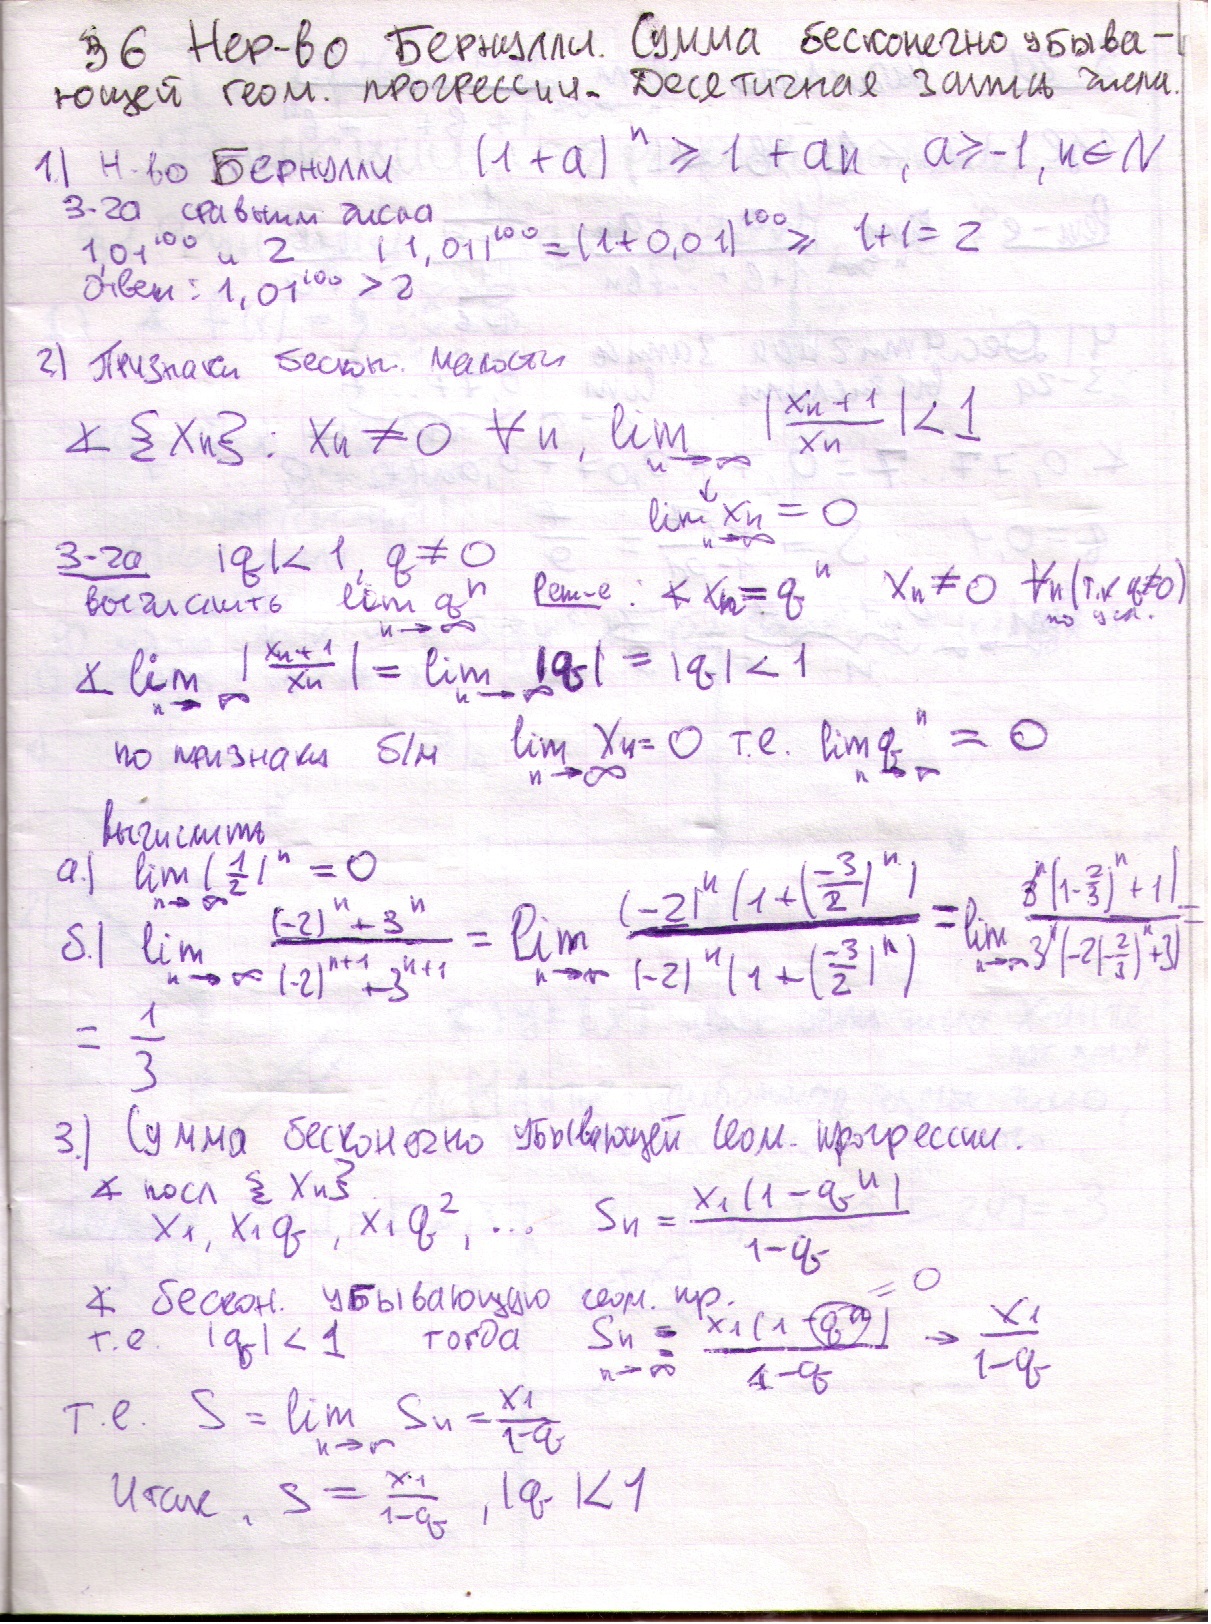 §6 Нер-во Бернулли. Сумма бесконечно убыва-
ющей геом. прогрессии. Десетичная запись числа.
1.) Н-во Бернулли (1+a)^n ≥ 1+an, a≥-1, n∈N
З-га сравним числа
1,01^100 и 2 (1,01)^100 = (1+0,01)^100 ≥ 1+1=2
Ответ: 1,01^100 > 2
2.) Признаки бескон. малости
∢ {Xn}: Xn≠0 ∀n, lim n→∞ |Xn+1/Xn| < 1
↓
lim n→∞ Xn = 0
З-га |q|<1, q≠0
вычислить lim n→∞ q^n Реш-е: ∢ Xn = q^n Xn≠0 ∀n (т.к q≠0)
по усл.
∢ lim n→∞ |Xn+1/Xn| = lim n→∞ |q| = |q| < 1
по признаки б/м lim n→∞ Xn = 0 т.е. lim n→∞ q^n = 0
Вычислить
а.) lim n→∞ (1/2)^n = 0
б.) lim n→∞ ((-2)^n + 3^n)/((-2)^n+1 + 3^n+1) = lim n→∞ ((-2)^n (1+(-3/2)^n))/((-2)^n (1+(-3/2)^n)) = lim n→∞ 3^n(1-2/3)^n+1)/3^n(-2(-2/3)^n+3) =
= 1/3
3.) Сумма бесконечно убывающей геом. прогрессии.
∢ посл {Xn}
X1, X1q, X1q^2, ... Sn = X1(1-q^n)/1-q
∢ бескон. убывающую геом. пр. = 0
т.е. |q|<1 тогда Sn n→∞ = X1(1-q^n)/1-q → X1/1-q
т.е. S = lim n→∞ Sn = X1/1-q
Итак, S = X1/1-q, |q|<1